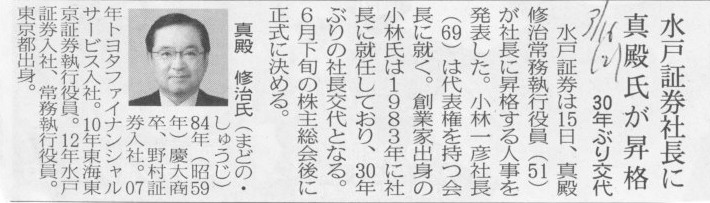 水戸証券社長に
真殿氏が昇格
30年ぶり交代
水戸証券は15日、真殿
修治常務執行役員（51）
が社長に昇格する人事を
発表した。小林一彦社長
（69）は代表権を持つ会
長に就く。創業家出身の
小林氏は1983年に社
長に就任しており、30年
ぶりの社長交代となる。
6月下旬の株主総会後に
正式に決める。
真殿　修治氏（まどの・
しゅうじ）
84年（昭59
年）慶大商
卒、野村証
券入社。07
年トヨタファイナンシャル
サービス入社。10年東海東
京証券執行役員。12年水戸
証券入社、常務執行役員。
東京都出身。